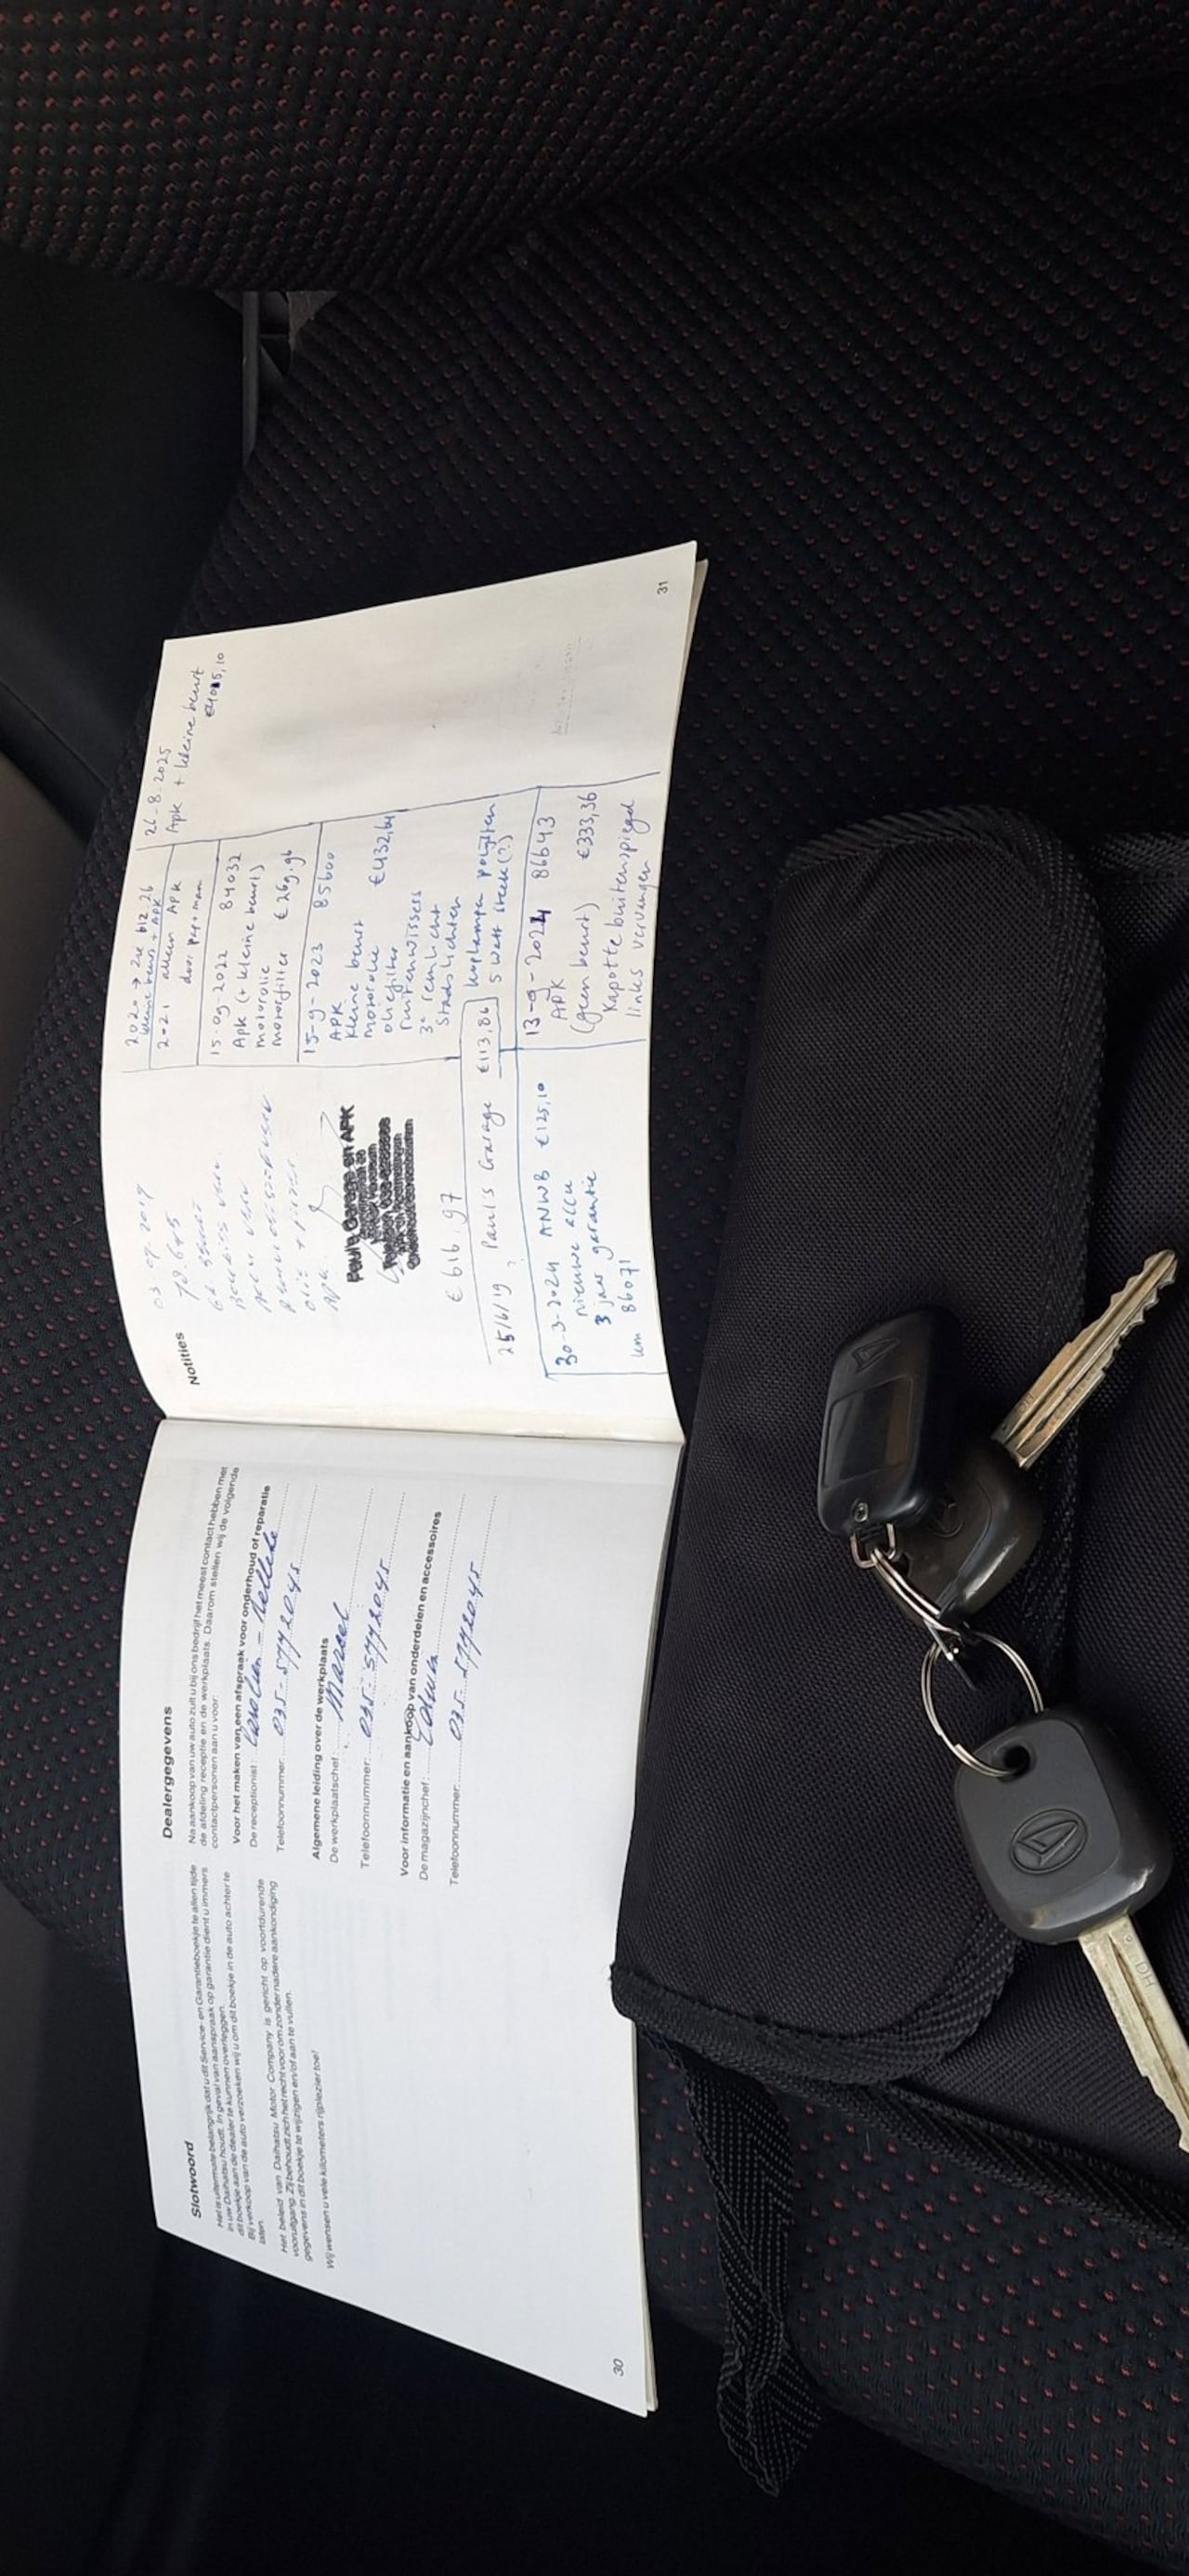 Slotwoord
Het is uitermate belangrijk dat u dit Service- en Garantieboekje te allen tijde
in uw Daihatsu houdt. In geval van aanspraak op garantie dient u immers
dit boekje aan de dealer te kunnen overleggen.
Bij verkoop van de auto verzoeken wij u om dit boekje in de auto achter te
laten.
Het beleid van Daihatsu Motor Company is gericht op voortdurende
vooruitgang. Zij behoudt zich het recht voor om zonder nadere aankondiging
gegevens in dit boekje te wijzigen en/of aan te vullen.
Wij wensen u vele kilometers rijplezier toe!
30
Dealergegevens
Na aankoop van uw auto zult u bij ons bedrijf het meest contact hebben met
de afdeling receptie en de werkplaats. Daarom stellen wij de volgende
contactpersonen aan u voor:
Voor het maken van een afspraak voor onderhoud of reparatie
De receptionist:
Telefoonnummer: 035-5772045
Algemene leiding over de werkplaats
De werkplaatschef: Marcel
Telefoonnummer: 035-5772045
Voor informatie en aankoop van onderdelen en accessoires
De magazijnchef:
Telefoonnummer: 035-5772045
Notities
03 07 2019
78.645
olie + filter
APK
Paul's Garage en APK
€ 616,97
25/6/19 Paul's Garage €113,86
koplampen polijsten
5 Watt steek(?)
30-3-2024 ANWB €125,10
nieuwe accu
3 jaar garantie
km 86071
2020 → zie blz. 26
kleine beurt + APK
2021 alleen APK
door
15-09-2022 84032
Apk (+ kleine beurt)
motorolie
motorfilter € 269,96
15-9-2023 85600
APK
kleine beurt
motorolie €432,64
oliefilter
ruitenwissers
3e remlicht
Stadslichten
13-9-2024 86643
APK
(geen beurt) €333,36
Kapotte buitenspiegel
links vervangen
26-8-2025
Apk + kleine beurt
31
DH